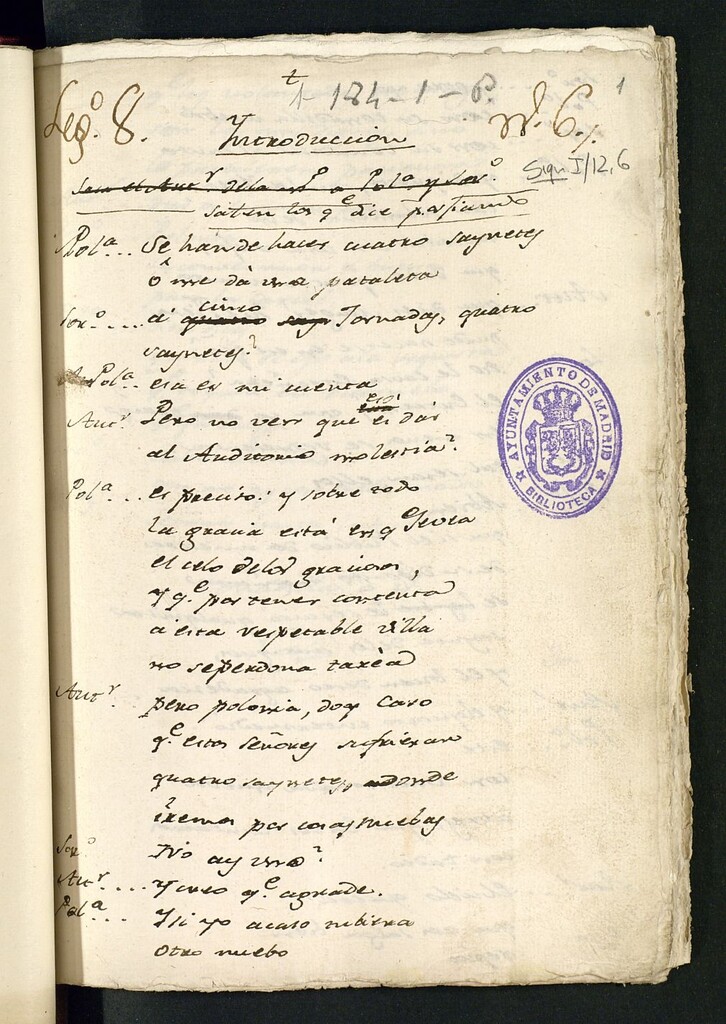 Leg.º 8.
1-184-1-6.
Nº. 6.
1
Introducción
Sign. I/12,6
salen los q.e dice porfiando
Pol.a ... Se han de hacer cuatro saynetes
ô me dà una pataleta
Sor.o .... a cinco Jornadas, quatro
saynetes?
Pol.a esa es mi cuenta
Aut.r Pero no veis que eso es dár
al Auditorio molestia?
Pol.a ... es preciso: y sobre todo
la gracia está en q.e se vea
el celo de los graciosos,
y q.e por tener contenta
a esta respetable villa
no se perdona taréa
Aut.r pero polonia, doy caso
q.e estos Señores sufrieran
quatro saynetes, adonde
iremos por cosas nuebas
Sor.o No ay una?
Aut.r .... Y creo q.e agrade.
Pol.a ... Y si yo acaso tubiera
otro nuebo
AYUNTAMIENTO DE MADRID
BIBLIOTECA